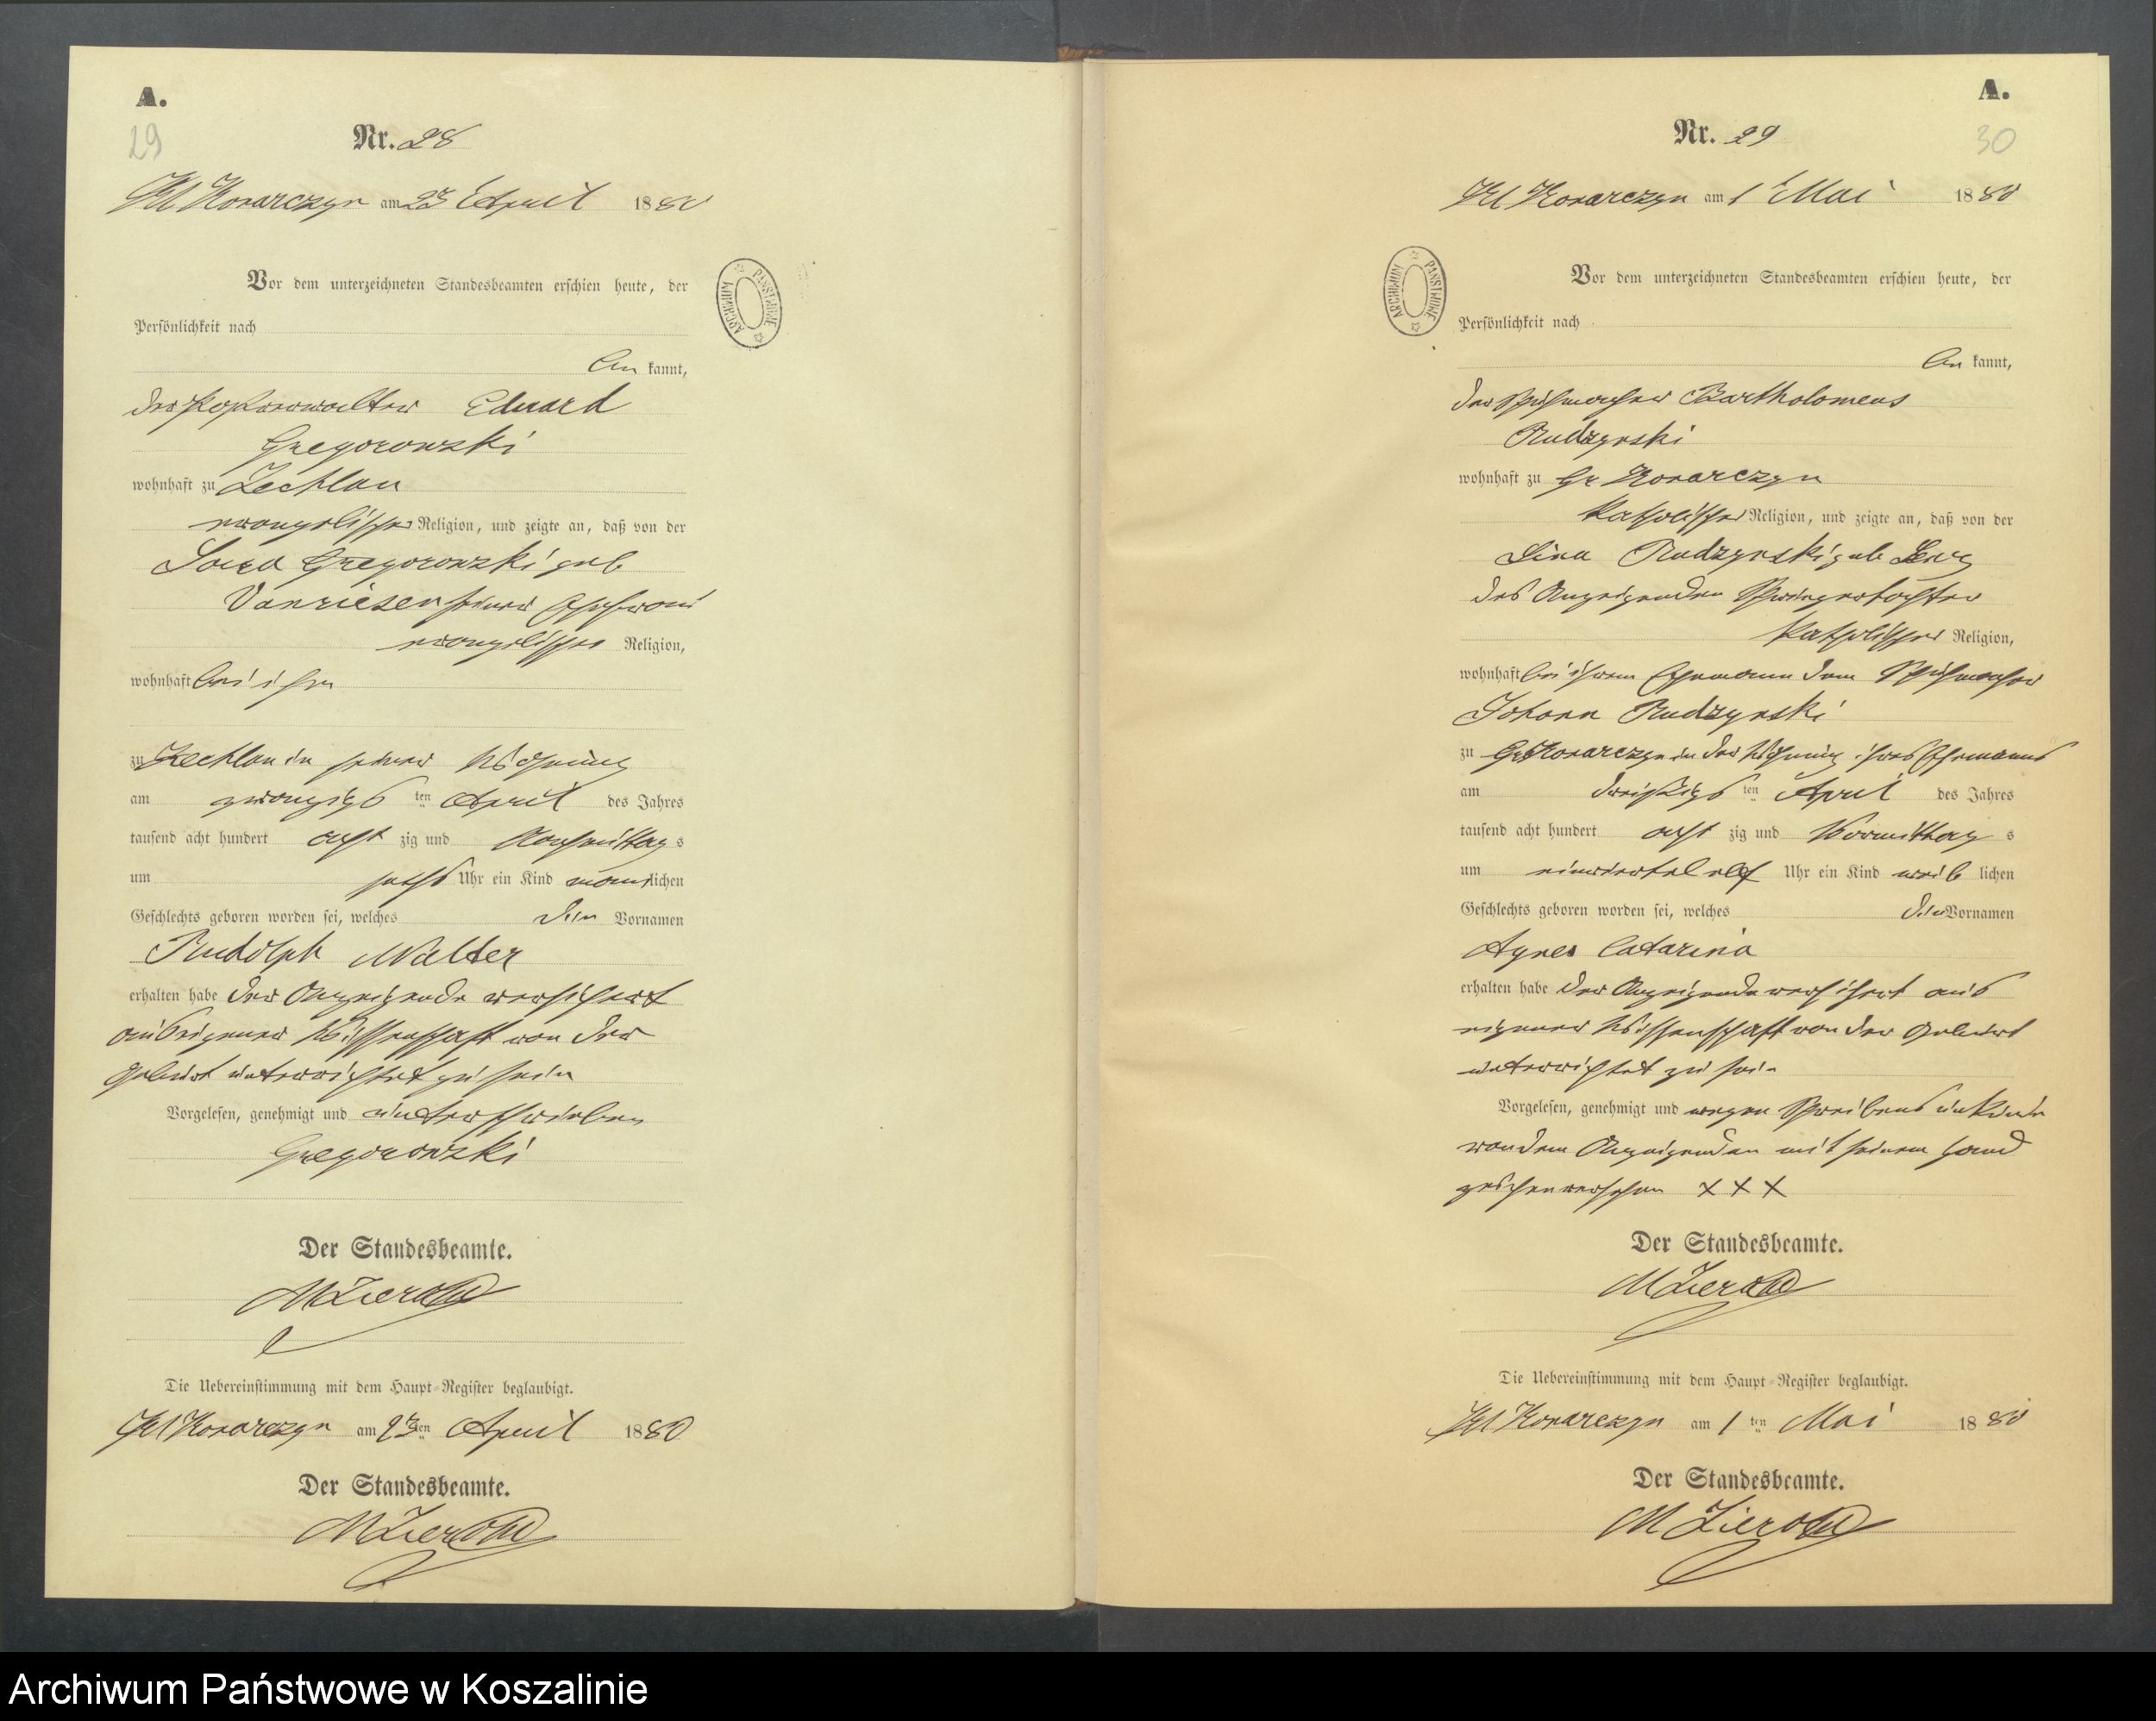 A.
29
Nr. 28
Kl Konarczyn am 23 April 1880
Vor dem unterzeichneten Standesbeamten erschien heute, der
Persönlichkeit nach
be kannt,
der Postverwalter Eduard
Gregorowski
wohnhaft zu Zechlau
evangelischer Religion, und zeigte an, daß von der
Gregorowski geb
Vanriesen seiner Ehefrau
evangelischer Religion,
wohnhaft bei ihm
zu Zechlau in seiner Wohnung
am zwanzigs ten April des Jahres
tausend acht hundert acht zig und Nachmittag s
um sechs Uhr ein Kind männlichen
Geschlechts geboren worden sei, welches den Vornamen
Rudolph Walter
erhalten habe der Anzeigende versichert
aus eigener Wissenschaft von der
Geburt unterrichtet zu sein
Vorgelesen, genehmigt und unterschrieben
Gregorowski
Der Standesbeamte.
Die Uebereinstimmung mit dem Haupt-Register beglaubigt.
Kl Konarczyn am 23 ten April 1880
Der Standesbeamte.
ARCHIWUM PAŃSTWOWE
A.
30
Nr. 29
Kl Konarczyn am 1 Mai 1880
Vor dem unterzeichneten Standesbeamten erschien heute, der
Persönlichkeit nach
be kannt,
der Schuhmacher Bartholomeus
Rudzynski
wohnhaft zu Gr Konarczyn
katholischer Religion, und zeigte an, daß von der
Lina Rudzynski geb
des Anzeigenden Schwiegertochter
katholischer Religion,
wohnhaft bei ihrem Ehemann dem Schuhmacher
Johann Rudzynski
zu Gr Konarczyn in der Wohnung ihres Ehemanns
am dreißigs ten April des Jahres
tausend acht hundert acht zig und Vormittag s
um einviertel elf Uhr ein Kind weib lichen
Geschlechts geboren worden sei, welches die Vornamen
Agnes Catarina
erhalten habe der Anzeigende versichert aus
eigener Wissenschaft von der Geburt
unterrichtet zu sein
Vorgelesen, genehmigt und wegen Schreibens unkunde
von dem Anzeigenden mit seinem Hand
zeichen versehen XXX
Der Standesbeamte.
Die Uebereinstimmung mit dem Haupt-Register beglaubigt.
Kl Konarczyn am 1 ten Mai 1880
Der Standesbeamte.
ARCHIWUM PAŃSTWOWE
Archiwum Państwowe w Koszalinie